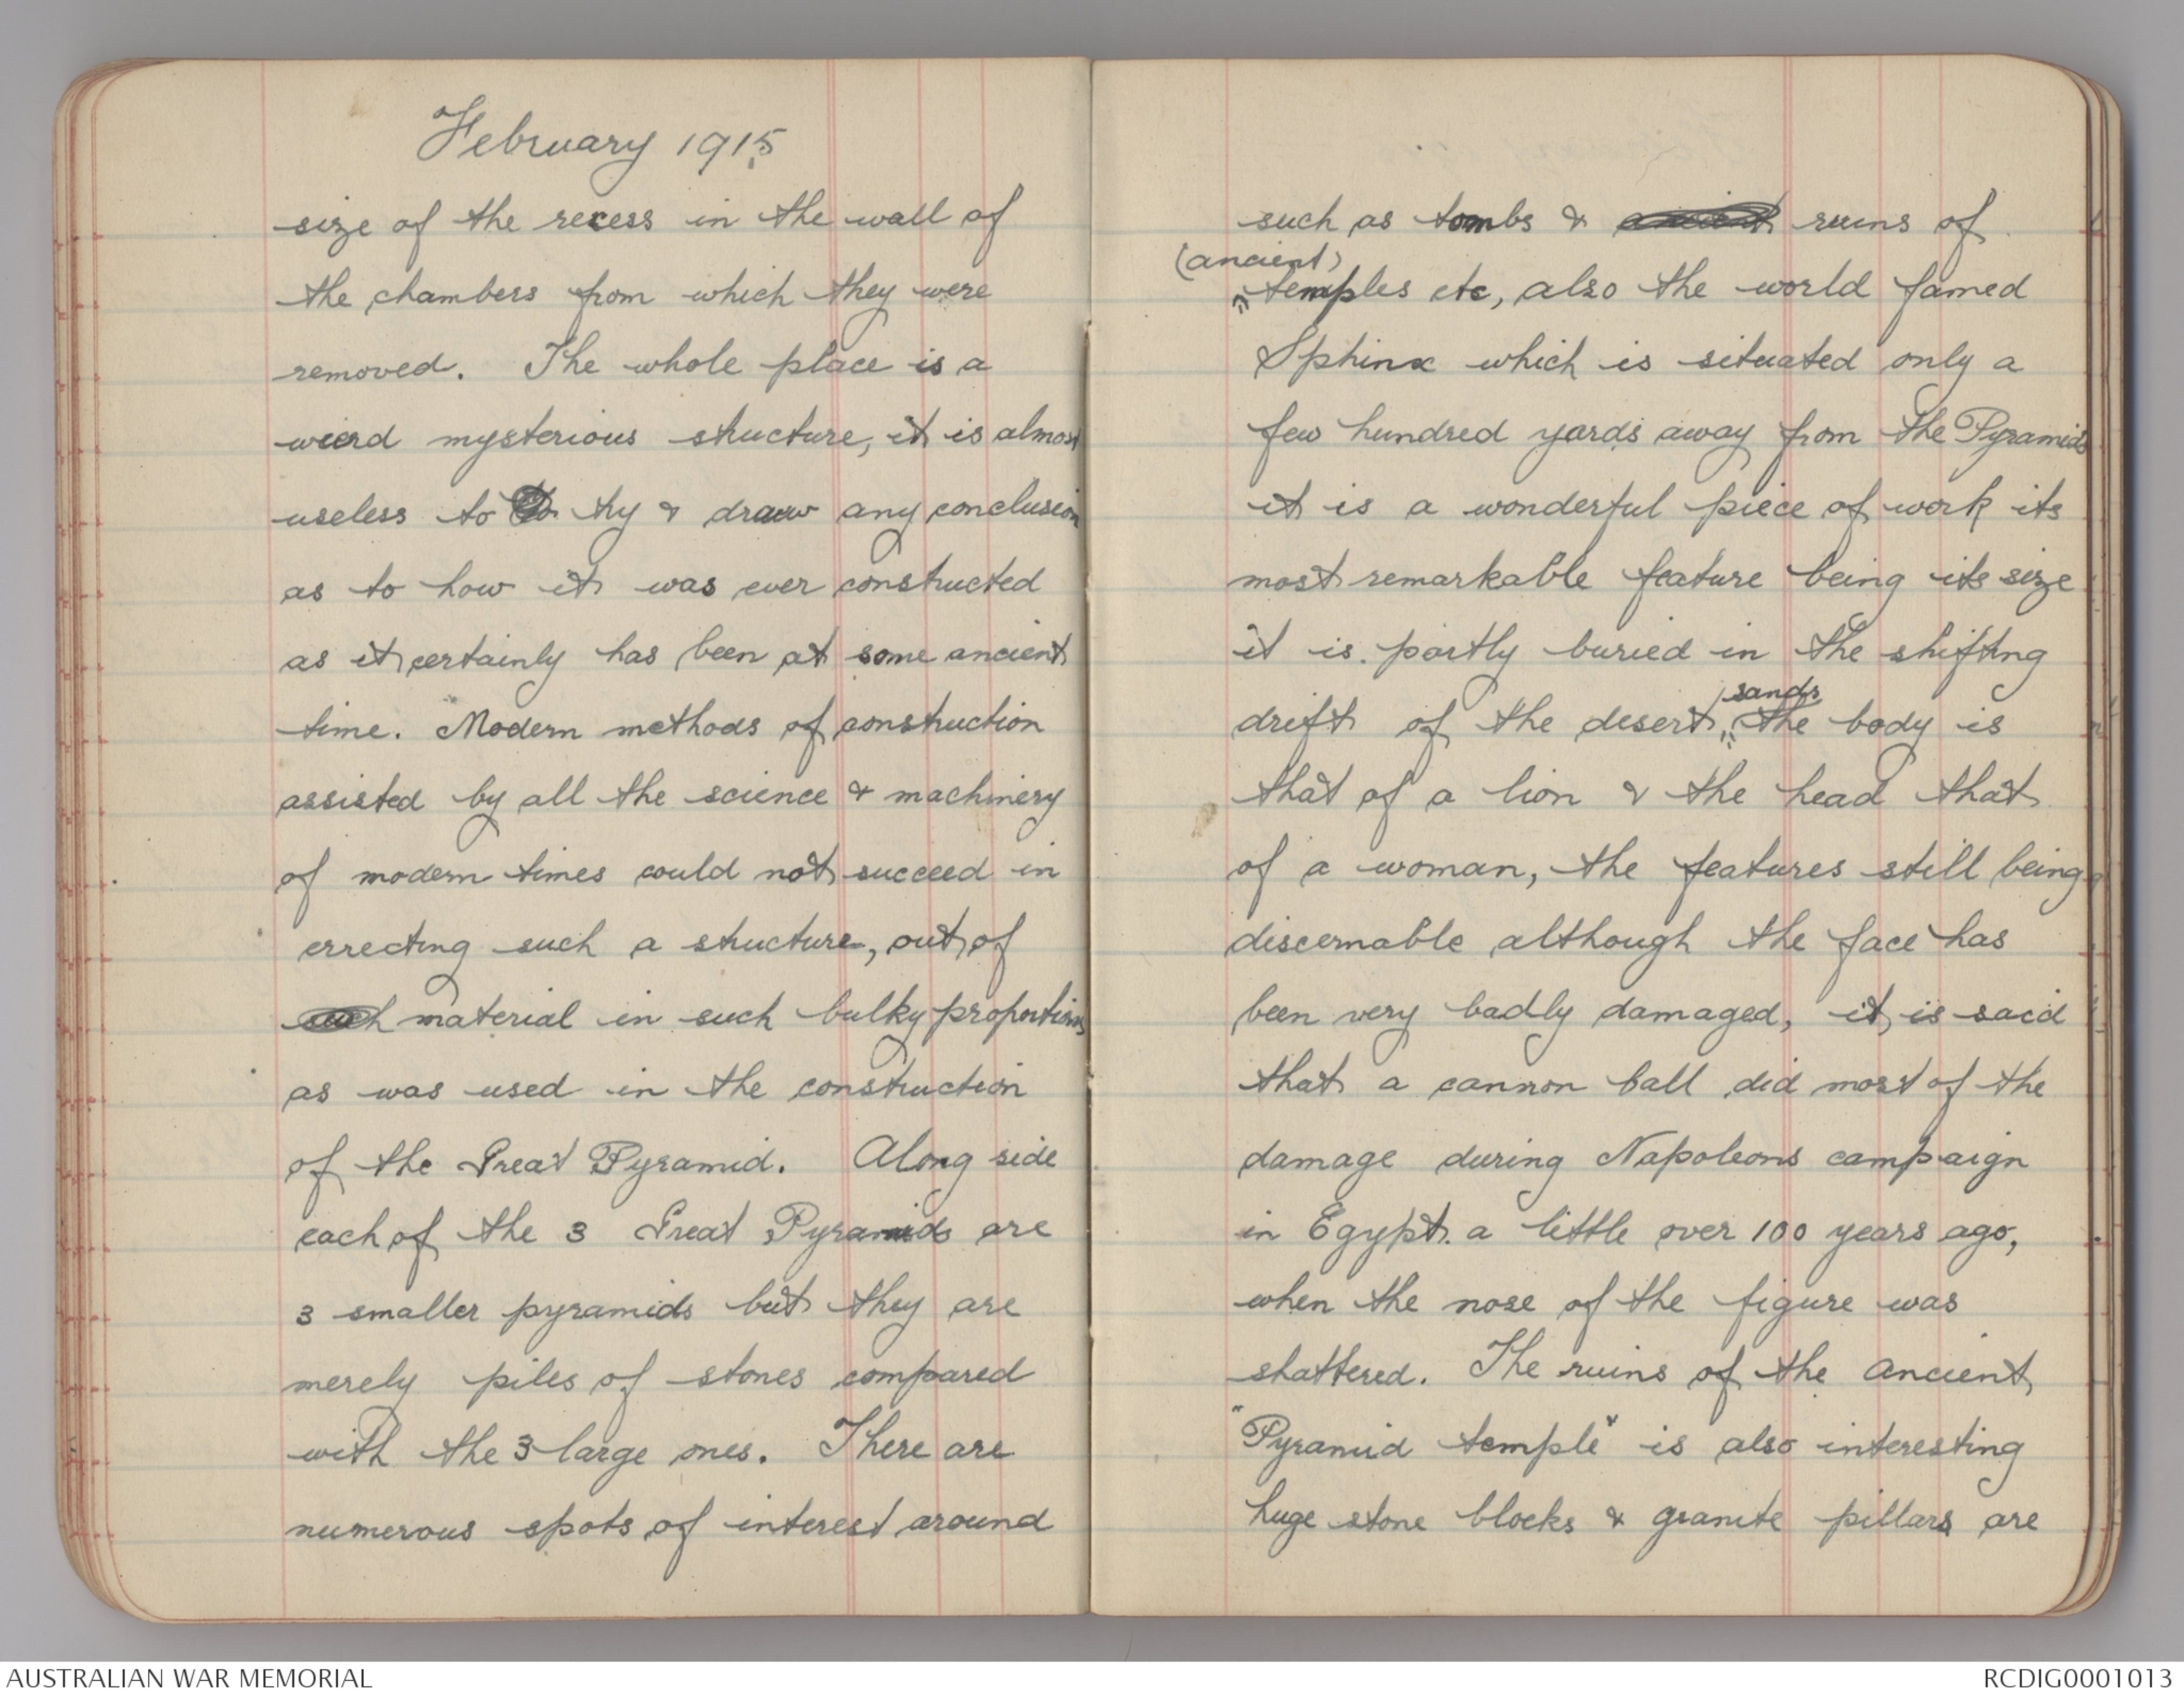 February 1915
size of the recess in the wall of
the chambers from which they were
removed. The whole place is a
wierd mysterious structure, it is almost
useless to try & draw any conclusion
as to how it was ever constructed
as it certainly has been at some ancient
time. Modern methods of construction
assisted by all the science & machinery
of modern times could not succeed in
errecting such a structure, out of
such material in such bulky proportions
as was used in the construction
of the Great Pyramid. Along side
each of the 3 Great Pyramids are
3 smaller pyramids but they are
merely piles of stones compared
with the 3 large ones. There are
numerous spots of interest around
such as tombs & ancient ruins of
(ancient)
temples etc, also the world famed
Sphinx which is situated only a
few hundred yards away from the Pyramids
it is a wonderful piece of work its
most remarkable feature being its size
it is partly buried in the shifting
sands
drift of the desert, the body is
that of a lion & the head that
of a woman, the features still being
discernable although the face has
been very badly damaged, it is said
that a cannon ball did most of the
damage during Napoleons campaign
in Egypt. a little over 100 years ago,
when the nose of the figure was
shattered. The ruins of the ancient
"Pyramid temple" is also interesting
huge stone blocks & granite pillars are
AUSTRALIAN WAR MEMORIAL
RCDIG0001013